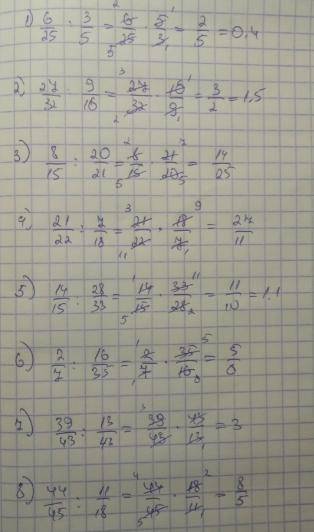 1) 6/25 : 3/5 = 6/25 · 5/3 = 2/5 = 0,4
2) 27/32 : 9/16 = 27/32 · 16/9 = 3/2 = 1,5
3) 8/15 : 20/21 = 8/15 · 21/20 = 14/25
4) 21/22 : 7/18 = 21/22 · 18/7 = 27/11
5) 14/15 : 28/33 = 14/15 · 33/28 = 11/10 = 1.1
6) 2/7 : 16/35 = 2/7 · 35/16 = 5/8
7) 39/43 : 13/43 = 39/43 · 43/13 = 3
8) 44/45 : 11/18 = 44/45 · 18/11 = 8/5